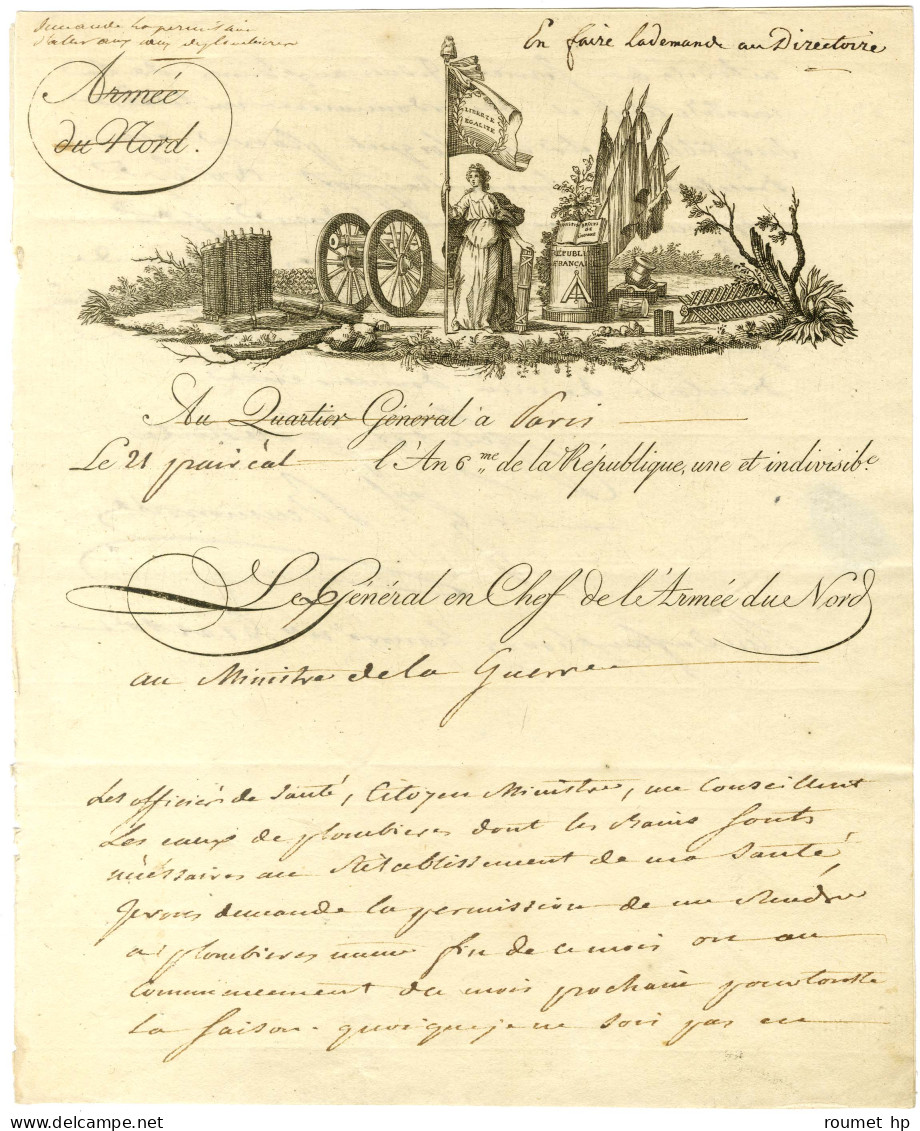 demande la permission
d'aller aux eaux de plombieres
En faire la demande au Directoire
Armée
du Nord.
LIBERTÉ
EGALITÉ
DROITS
DE
L'HOMME
RÉPUBLI
FRANÇAI
Au Quartier Général à Paris
Le 21 prairéal l'An 6.me de la République, une et indivisib.e
Le Général en Chef de l'Armée du Nord
au Ministre de la Guerre
Les officiers de santé, Citoyen Ministre, me Conseillent
Les eaux de plombieres dont les Bains sonts
nécéssaires au Rétablissement de ma santé,
Je vous demande la permission de me Rendre
a plombieres fin de ce mois ou au
Commencement du mois prochain pour toute
La saison. quoique je ne sois pas en
roumet hp